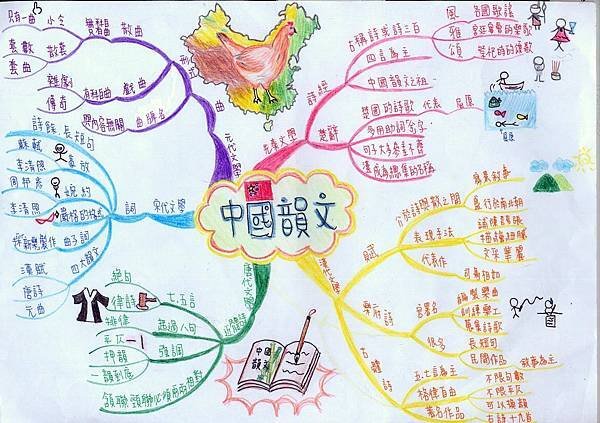 中國韻文
先秦文學
詩經
古稱詩或詩三百
風
各國歌謠
雅
宴筵會的樂歌
頌
祭祀時的頌歌
四言為主
中國韻文之祖
楚辭
楚國的詩歌
代表
屈原
多用助詞「兮」字
句子大多參差不齊
漢成為總集的名稱
屈原
漢代文學
賦
介於詩與散文之間
盛行於南北朝
表現手法
鋪陳
描繪細膩
文采華麗
代表作
司馬相如
樂府詩
官署名
編製樂曲
訓練樂工
蒐集詩歌
長短句
民間作品
敘事為主
古體詩
五、七言為主
格律自由
不限句數
不限平仄
可以換韻
著名作品
古詩十九首
唐代文學
近體詩
絕句
律詩
七、五言
排律
超過八句
平仄
押韻
韻到底
頷聯
頸聯必須兩兩相對
中國韻文
宋代文學
詞
詩餘
長短句
蘇軾
豪放
李清照
周邦彥
婉約
李清照
嚴格的格式
曲子詞
四大韻文
漢賦
唐詩
元曲
元代文學
曲
形式
散曲
無科白
小令
只有一曲
散套
套數
套曲
戲曲
有科白
雜劇
傳奇
曲牌名
與內容無關